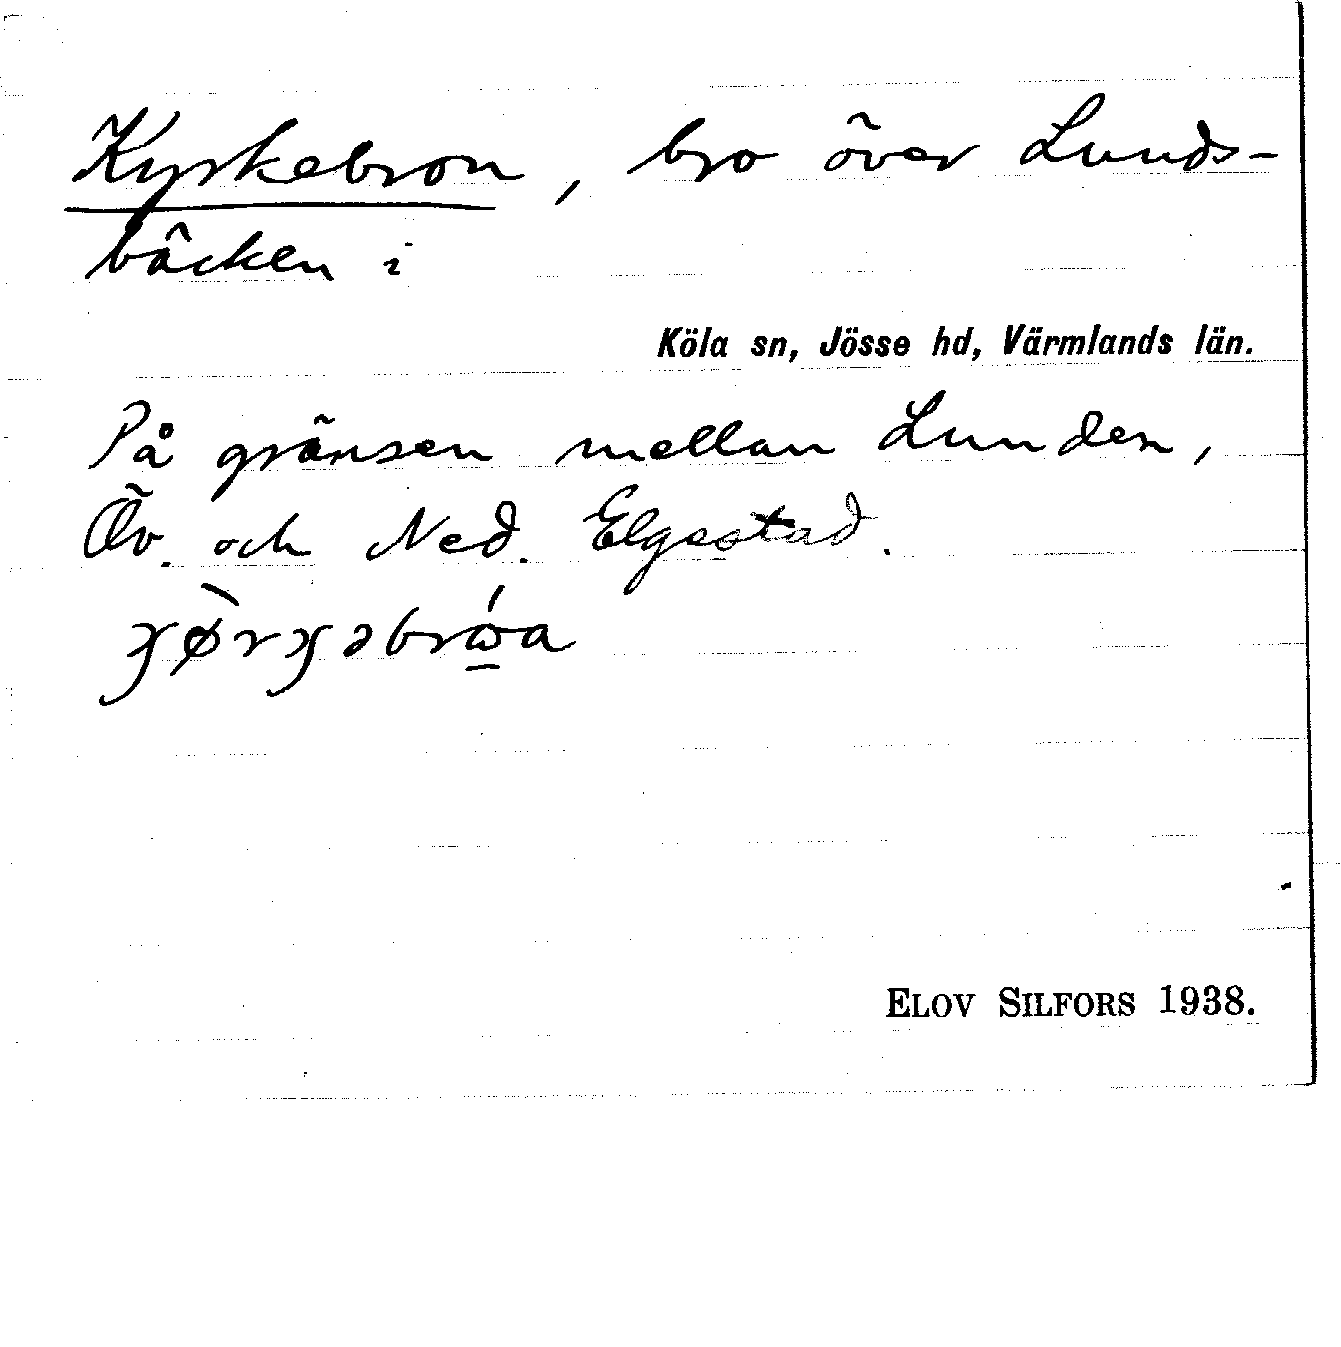 Kyrkebron, bro över Lunds-
bäcken i
Köla sn, Jösse hd, Värmlands län.
På gränsen mellan Lunden,
Öv. och Ned. Elgsstad.
ELOV SILFORS 1938.